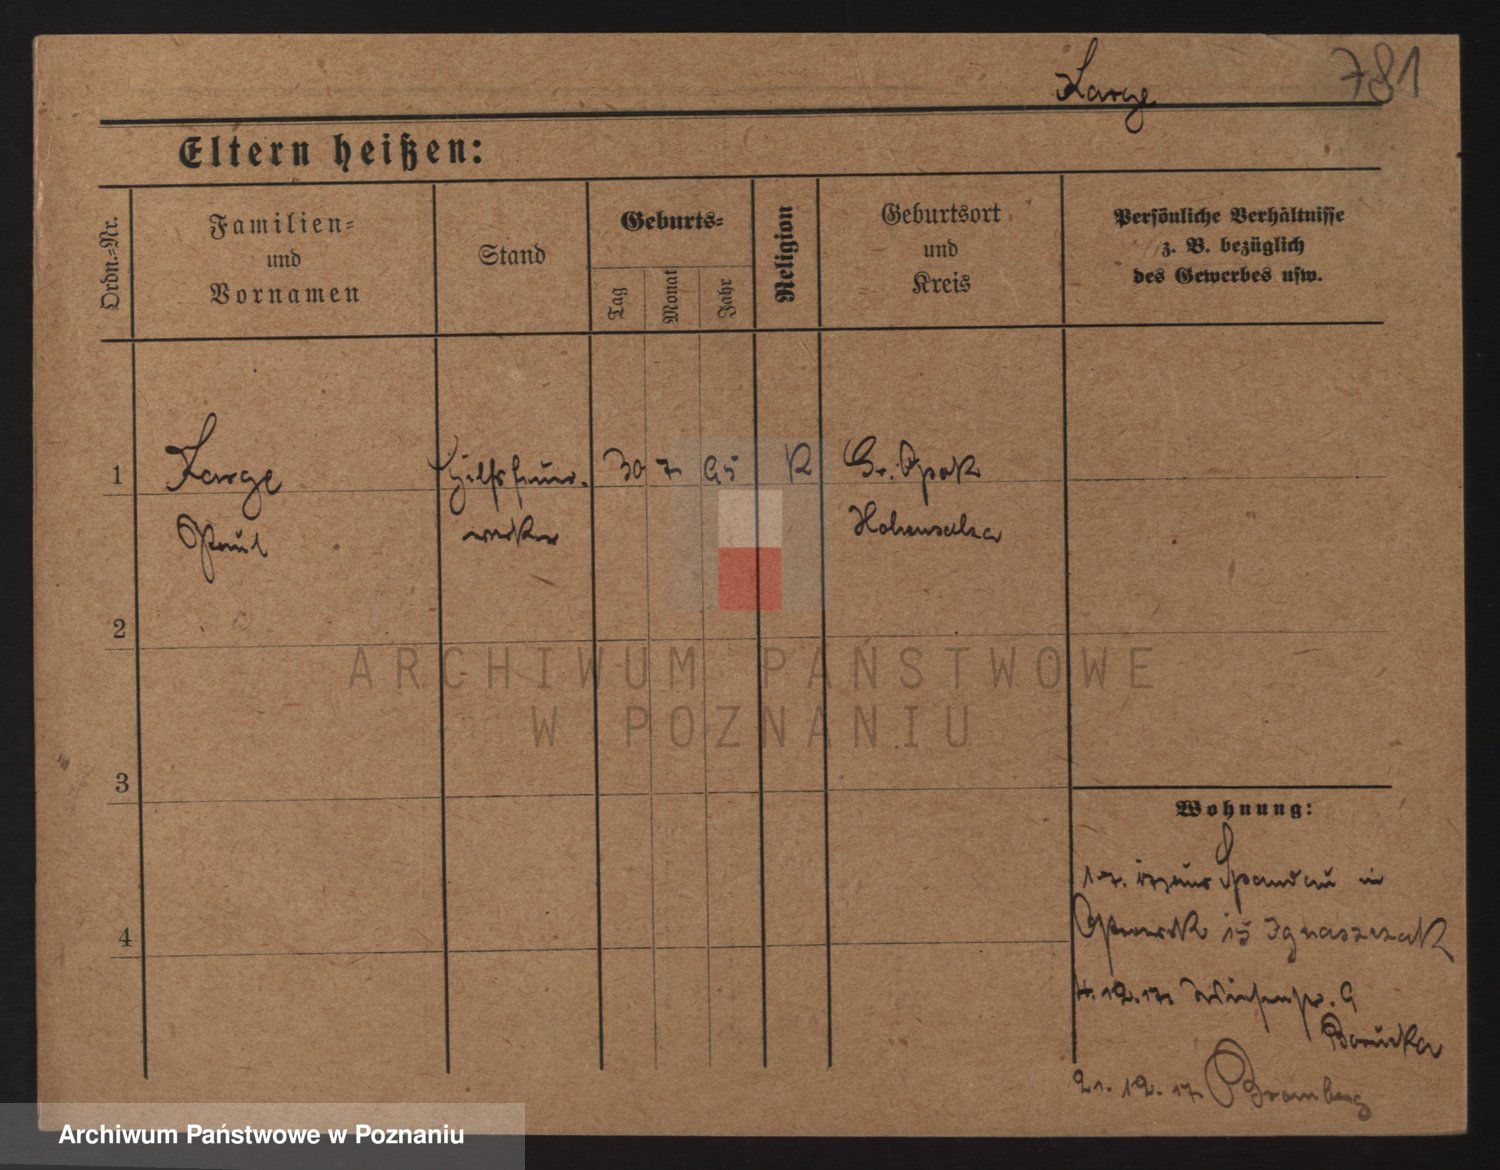 Large 781
Eltern heißen:
Ordn.=Nr.
Familien=
und
Vornamen
Stand
Geburts=
Tag
Monat
Jahr
Religion
Geburtsort
und
Kreis
Persönliche Verhältnisse
z. B. bezüglich
des Gewerbes usw.
1 Large Hilfsfeuer- 30 7 95 K Gr. Opok
Paul werker Hohensalza
2
3
4
Wohnung:
Spandau in
15 Ignaszezak
4.12.17. Wiesenstr. 9
21.12.17 Bromberg
ARCHIWUM PAŃSTWOWE
W POZNANIU
Archiwum Państwowe w Poznaniu